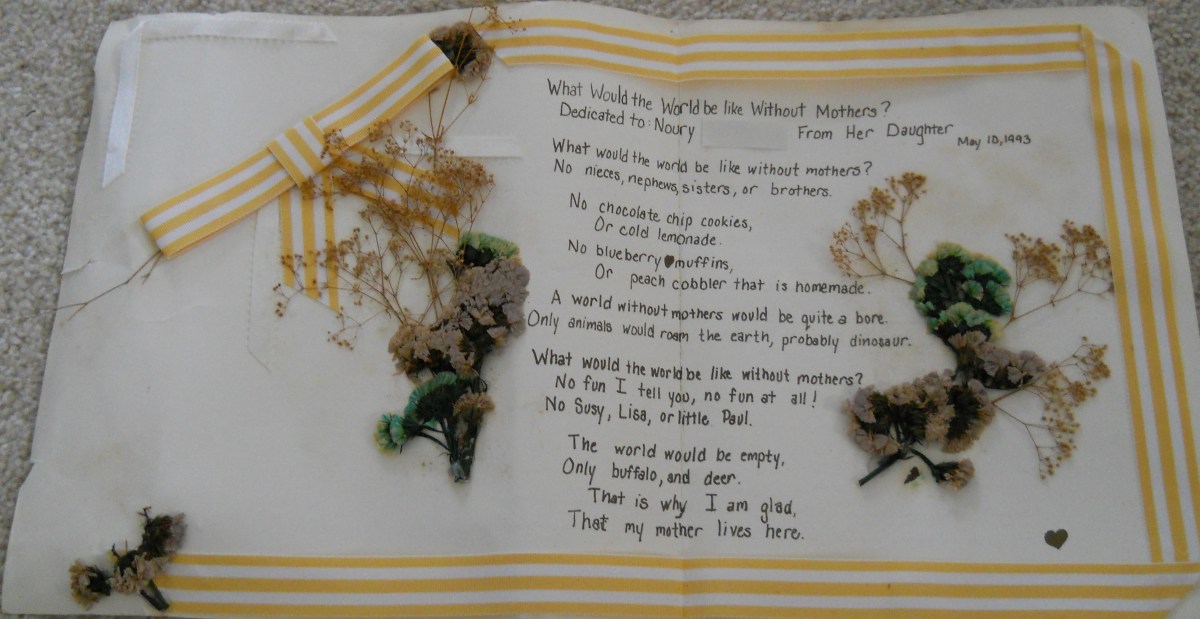 What Would the World be like Without Mothers?
Dedicated to: Noury From Her Daughter May 10, 1993
What would the world be like without mothers?
No nieces, nephews, sisters, or brothers.
No chocolate chip cookies,
Or cold lemonade.
No blueberry muffins,
Or peach cobbler that is homemade.
A world without mothers would be quite a bore.
Only animals would roam the earth, probably dinosaur.
What would the world be like without mothers?
No fun I tell you, no fun at all!
No Susy, Lisa, or little Paul.
The world would be empty,
Only buffalo, and deer.
That is why I am glad,
That my mother lives here.